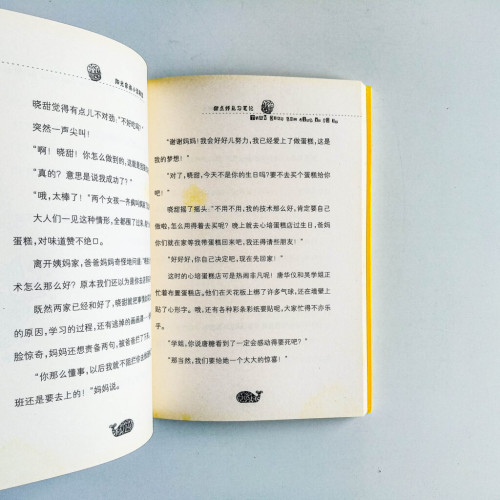 阳光
晓甜觉得有点儿不对劲:“不好吃吗?”
突然一声尖叫!
“啊!晓甜!你怎么做到的,这
“真的?意思是说我成功了?”
“哦,太棒了!”两个女孩一齐
大人们一见这种情形,全都围了过来,
蛋糕,对味道赞不绝口。
离开姨妈家,爸爸妈妈奇怪地问道
术怎么那么好?原本我们还以为是你去
既然两家已经和好了,晓甜就把事
的原因,学习的过程,还有逃掉的画画课一
脸惊奇,妈妈还想责备两句,被爸爸拦了下
“你那么懂事,以后我就不阻拦你去
班还是要去上的!”妈妈说。
甜点师见习笔记
“谢谢妈妈!我会好好儿努力,我已经爱上了做蛋糕,这是
我的梦想!”
“对了,晓甜,今天不是你的生日吗?要不去买个蛋糕给你
吧!”
晓甜摇了摇头:“不用不用,我的技术那么好,肯定要自己
做啦,怎么用得着去买呢?晚上就去心培蛋糕店过生日,爸妈
你们就在家等我带蛋糕回来吧,我还得请些朋友!”
“好好好,你自己决定吧,现在先回家!”
这时的心培蛋糕店可是热闹非凡呢!唐华仪和吴学姐正
忙着布置蛋糕店。他们在天花板上绑了许多气球,还在墙壁上
贴了心形字。哦,还有各种彩条彩纸要贴呢,大家忙得不亦乐
乎。
“学姐,你说唐糖看到了一定会感动得要死吧?”
“那当然,我们要给她一个大大的惊喜!”